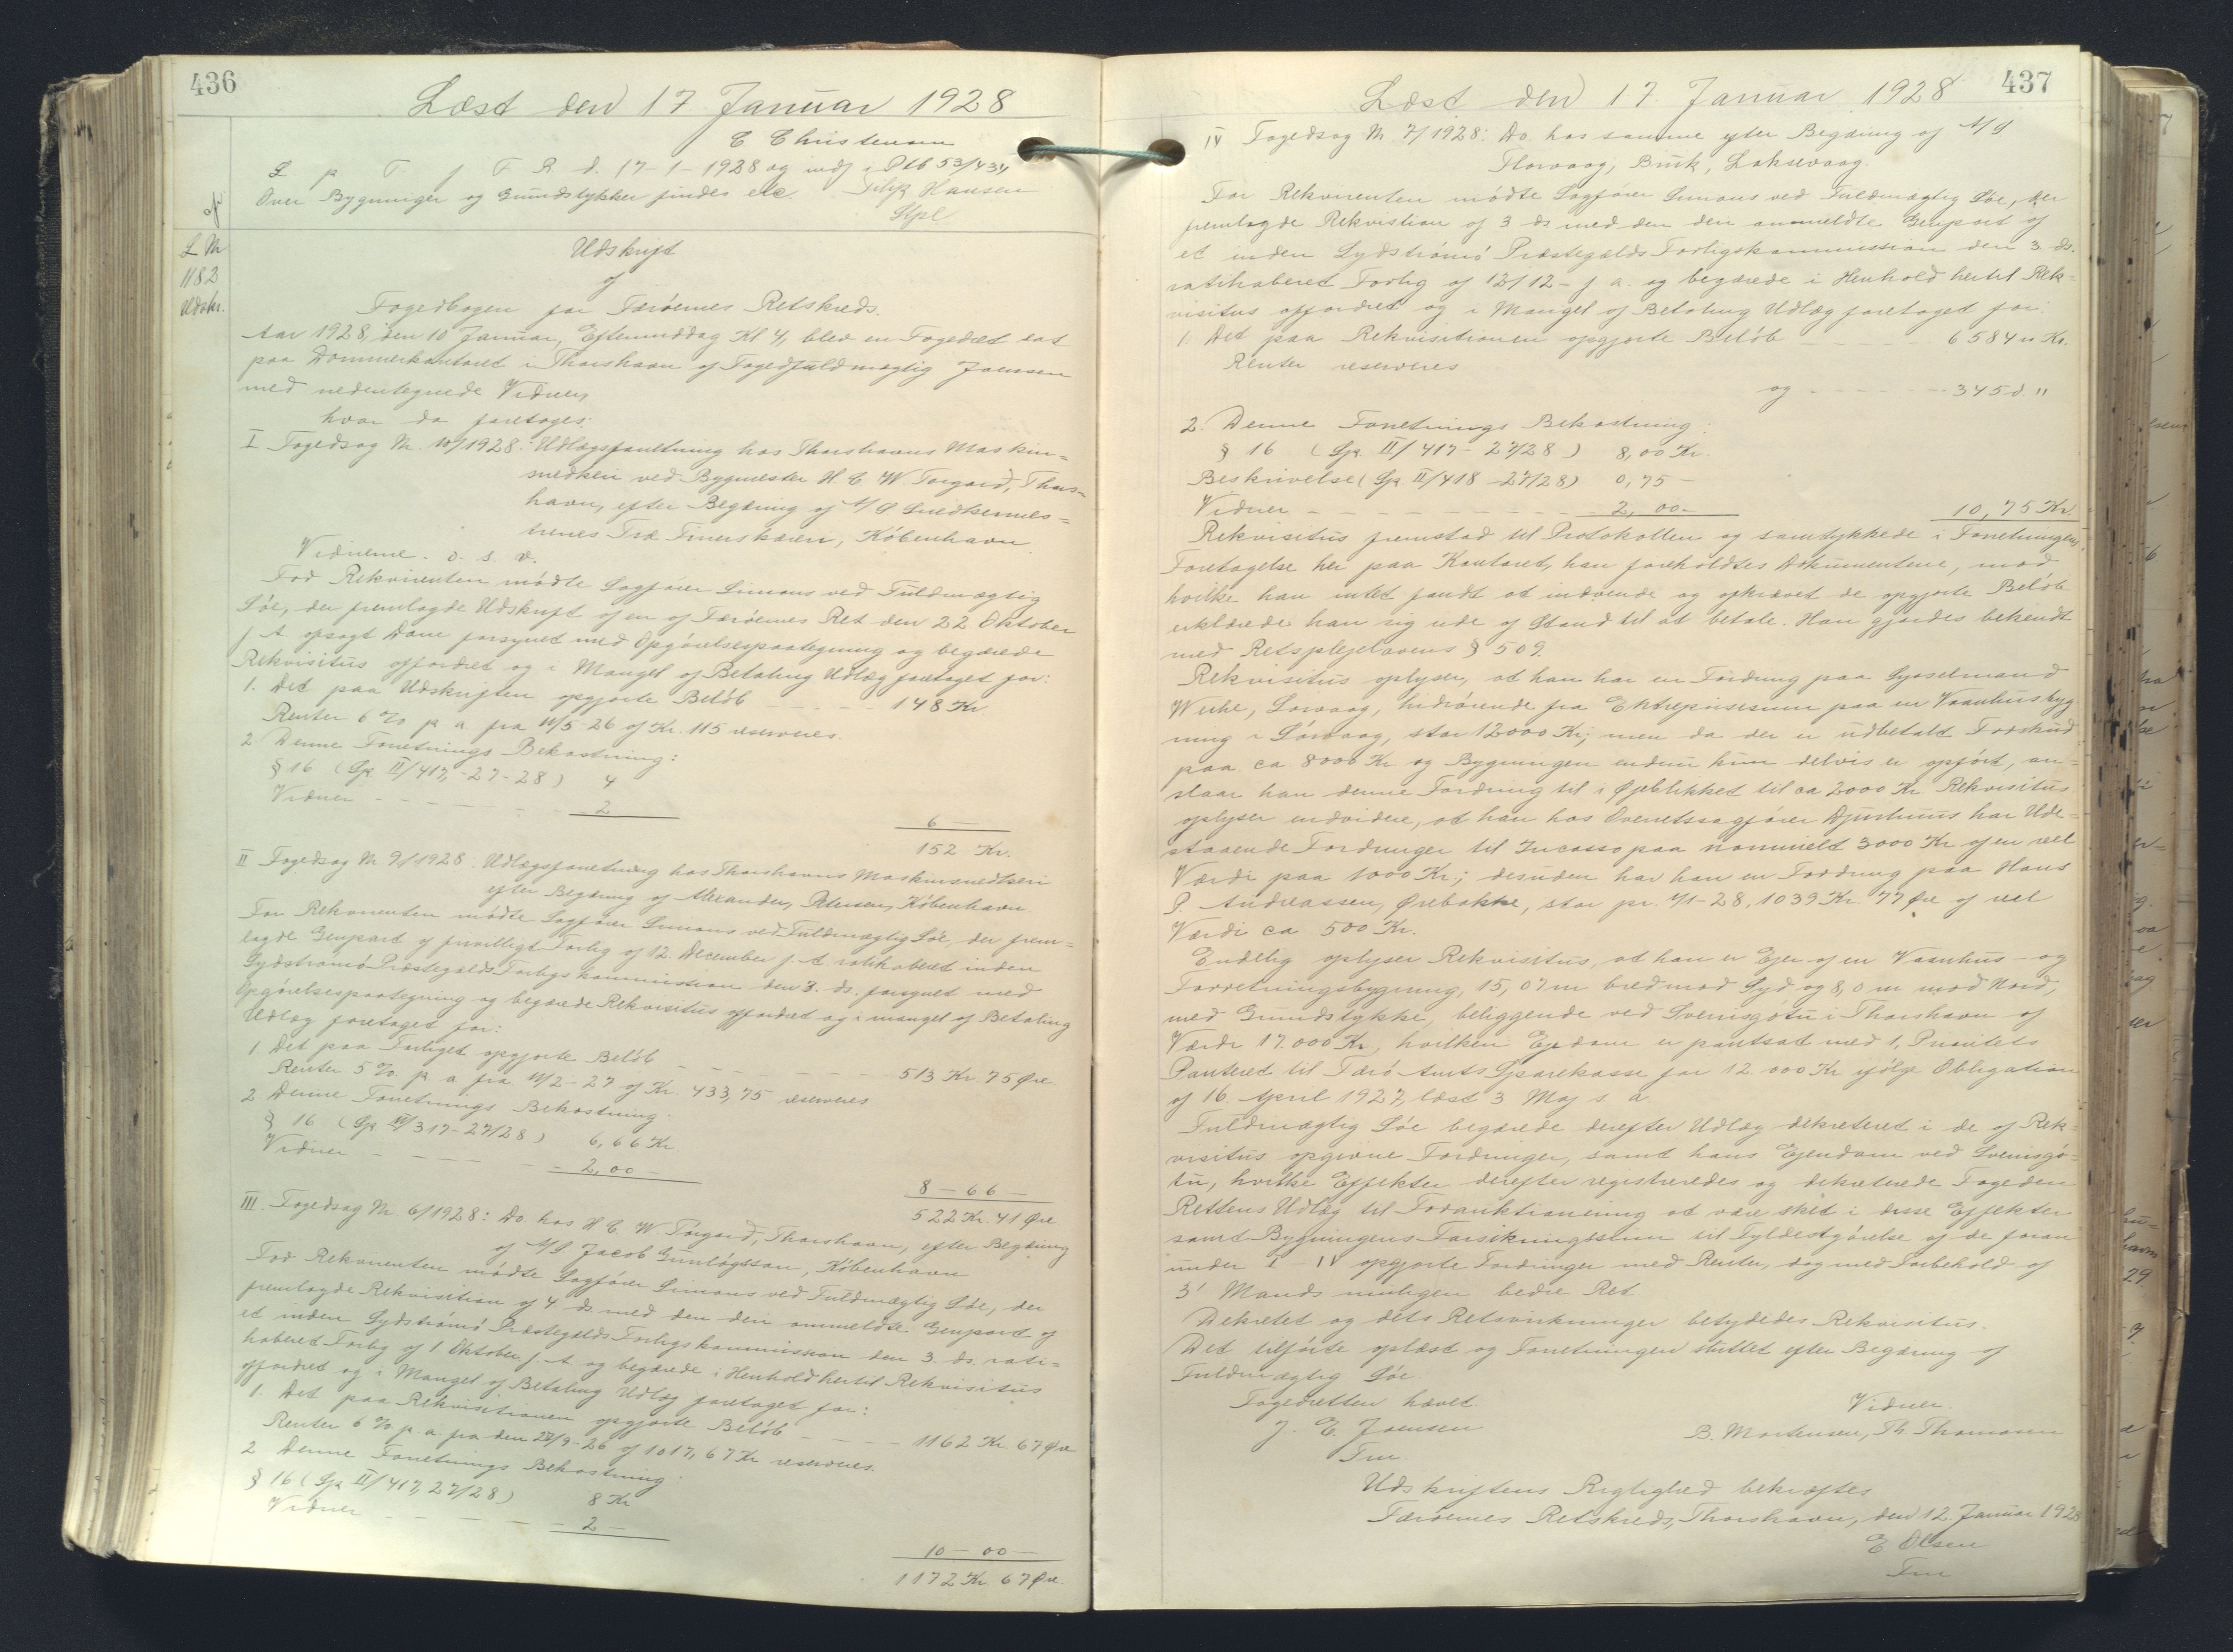 436
Læst den 17 Januar 1928
E Christensen
L p T. f F R. d. 17-1-1928 og indf i Ptb 53/434
Over Bygninger og Grundstykker findes etc. Filip Hansen
Stpl
L Nr
1182
Udskr.
Udskrift
af
Fogedbogen for Færøernes Retskreds.
Aar 1928, den 10 Januar, Eftermiddag Kl 4, blev en Fogedret sat
paa Dommerkontoret i Thorshavn af Fogedfuldmægtig Joensen
med nedentegnede Vidner,
hvor da foretoges:
I Fogedsag Nr. 10/1928: Udlægsforretning hos Thorshavns Maskin=
snedkeri ved Bygmester H. C. W. Torgard, Thors=
havn, efter Begæring af A/S Snedkermes=
trenes Træ Finerskæreri, København
Vidnerne. o. s. v.
For Rekvirenten mødte Sagfører Simons ved Fuldmægtig
Søe, der fremlagde Udskrift af en af Færøernes Ret den 22 Oktober
f. A. afsagt Dom forsynet med Opgørelsespaategning og begærede
Rekvisitus opfordret og i Mangel af Betaling Udlæg foretaget for:
1. Det paa Udskriften opgjorte Beløb - - - - - 148 Kr
Renter 6 % p. a. fra 11/5-26 af Kr. 115 reserveres.
2. Denne Forretnings Bekostning:
§ 16 (Gp. II/417,-27-28) 4
Vidner - - - - - - - 2
6 -
152 Kr.
II Fogedsag Nr 9/1928: Udlægsforretning hos Thorshavns Maskinsnedkeri
efter Begæring af Alexander, Petersen, København.
For Rekvirenten mødte Sagfører Simons ved Fuldmægtig Søe, der frem=
lagde Genpart af frivilligt Forlig af 12. December f. A. ratihaberet inden
Sydstrømø Præstegælds Forligskommission den 3. ds. forsynet med
Opgørelsespaategning og begærede Rekvisitus opfordret og i mangel af Betaling
Udlæg foretaget for:
1. Det paa Forliget opgjorte Beløb - - - - - - 513 Kr 75 Øre.
Renter 5 % p. a fra 11/2-27 af Kr. 433,75 reserveres
2 Denne Forretnings Bekostning.
§ 16 (Gp III/317-27/28) 6,66 Kr.
Vidner - - - - - - 2,00 -
8 - 66 -
522 Kr. 41 Øre
III. Fogedsag Nr. 6/1928: Do hos H. C. W. Torgard, Thorshavn, efter Begæring
af A/S Jacob Gunløgsson, København
For Rekvirenten mødte Sagfører Simons ved Fuldmægtig Søe, der
fremlagde Rekvisition af 4 ds. med den deri anmeldte Genpart af
et inden Sydstrømø Præstegælds Forligskommission den 3. ds. rati=
haberet Forlig af 1 Oktober f. A. og begærede i Henhold hertil Rekvisitus
opfordret og i Mangel af Betaling Udlæg foretaget for:
1. Det paa Rekvisitionen opgjorte Beløb - - - - 1162 Kr. 67 Øre
Renter 6 % p. a. fra den 24/9-26 af 1017,67 Kr reserveres.
2 Denne Forretnings Bekostning:
§ 16 (Gp II/417, 27/28) 8 Kr
Vidner - - - - - - 2 -
10 - 00 -
1172 Kr. 67 Øre.
437
Læst den 17. Januar 1928
IV Fogedsag Nr. 7/1928: Do. hos samme efter Begæring af A/S
Florvaag, Bruk, Laksevaag.
For Rekvirenten mødte Sagfører Simons ved Fuldmægtig Søe, der
fremlagde Rekvisition af 3 ds med den deri anmeldte Genpart af
et inden Sydstrømø Præstegælds Forligskommission den 3. ds.
ratihaberet Forlig af 12/12- f a. og begærede i Henhold hertil Rek=
visitus opfordret og i Mangel af Betaling Udlæg foretaget for:
1. Det paa Rekvisitionen opgjorte Beløb - - - - - 6584 n Kr.
Renter reserveres
og - - - - - - 345 d "
2. Denne Forretnings Bekostning:
§ 16 (Gp. II/417- 27/28) 8,00 Kr.
Beskrivelse (Gp. II/418 -27/28) 0,75 -
Vidner - - - - - - - - 2,00 - 10,75 Kr.
Rekvisitus fremstod til Protokollen og samtykkede i Forretningens
Foretagelse her paa Kontoret, han foreholdtes Dokumenterne, mod
hvilke han intet fandt at indvende og afkrævet de opgjorte Beløb
erklærede han sig ude af Stand til at betale. Han gjordes bekendt
med Retsplejelovens § 509.
Rekvisitus oplyser, at han har en Fordring paa Sysselmand
Weihe, Sørvaag, hidrørende fra Entreprisesum paa en Vaanhusbyg
ning i Sørvaag, stor 12000 Kr; men da der er udbetalt Forskud
paa ca 8000 Kr og Bygningen endnu kun delvis er opført, an=
slaar han denne Fordring til i Øjeblikket til ca 2000 Kr. Rekvisitus
oplyser endvidere, at han hos Overretssagfører Djurhuus har Ude=
staaende Fordringer til Incasso paa nominelt 3000 Kr af en reel
Værdi paa 1000 Kr.; desuden har han en Fordring paa Hans
P. Andreassen, Ørebakke, stor pr. 1/1-28, 1039 Kr. 77 Øre af reel
Værdi ca 500 Kr.
Endelig oplyser Rekvisitus, at han er Ejer af en Vaanhus- og
Forretningsbygning, 15,07 m bred mod Syd og 8,0 m mod Nord,
med Grundstykke, beliggende ved Sverrisgøtu i Thorshavn af
Værdi 17.000 Kr, hvilken Ejendom er pantsat med 1. Prioritets
Panteret til Færø Amts Sparekasse for 12.000 Kr ifølge Obligation
af 16. April 1927, læst 3 Maj s. a.
Fuldmægtig Søe begærede derefter Udlæg dekreteret i de af Rek=
visitus opgivne Fordringer, samt hans Ejendom ved Sverrisgø=
tu, hvilke Effekter derefter registreredes og dekreterede Fogeden
Rettens Udlæg til Forauktionering at være sket i disse Effekter
samt Bygningens Forsikringssum til Fyldestgørelse af de foran
under I - IV opgjorte Fordringer med Renter, dog med Forbehold af
3' Mands muligen bedre Ret
Dekretet og dets Retsvirkninger betydedes Rekvisitus.
Det tilførte oplæst og Forretningen sluttet efter Begæring af
Fuldmægtig Søe
Fogedretten hævet.
Vidner.
J. E. Joensen
B. Mortensen, Th. Thomasen
Fm.
Udskriftens Rigtighed bekræftes
Færøernes Retskreds, Thorshavn, den 12. Januar 1928
E Olsen
Fm